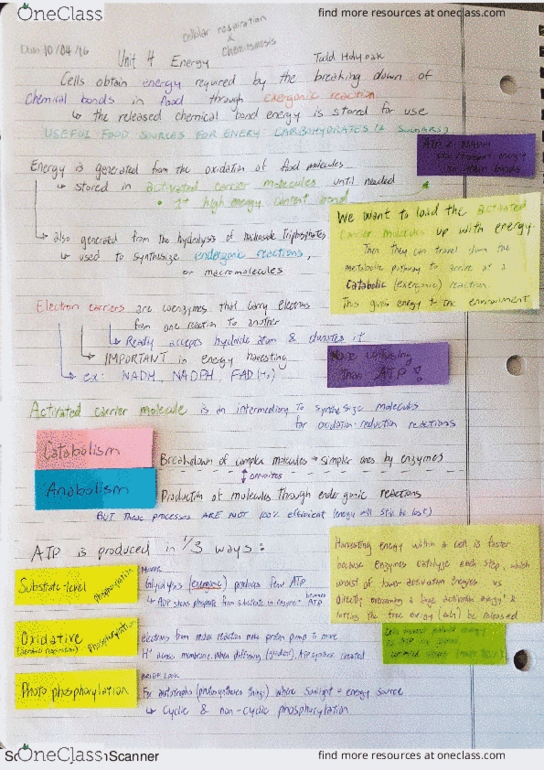 OneClass
find more resources at oneclass.com
10/04/16
Cellular respiration
&
Chemiosmosis
Unit 4 Energy
Cells obtain energy required by the breaking down of
chemical bonds in food through exergonic reaction
↳ the released chemical bond energy is stored for use
USEFUL FOOD SOURCES FOR ENERY CARBOHYDRATES (& SUGARS)
Energy is generated from the oxidation of food molecules
↳ stored in activated carrier molecules until needed
high energy covalent bond
We want to load the activated
carrier molecules up with energy.
Then they can travel down the
metabolic pathway to arrive at a
Catabolic (exergonic) reaction.
This gives energy to the environment
↳ also generated from the hydrolysis of nucleoside triphosphates
↳ used to synthesize endergonic reactions,
or macromolecules
Electron carriers are coenzymes that carry electrons
from one reaction to another
↳ Readily accepts hydride atom & donates it
↳ IMPORTANT in energy harvesting
↳ ex: NADH, NADPH, FAD(H₂)
than ATP!
Activated carrier molecule is an intermediary to synthesize molecules
for oxidation-reduction reactions
Catabolism
Breakdown of complex molecules → simpler ones by enzymes
↕ opposites
Anabolism
Production of molecules through endergonic reactions
BUT these processes ARE NOT 100% efficient (energy will still be lost)
ATP is produced in 1/3 ways:
Harvesting energy within a cell is faster
because enzymes catalyze each step, which
of lower activation energies vs
directly overcoming a large activation energy &
letting the free energy be released
Substrate-level phosphorylation
Glycolysis (exergonic) produces few ATP
↳ ADP steals phosphate from substrate in enzyme → becomes ATP
Oxidative Phosphorylation
(aerobic respiration)
electrons from redox reaction make proton pump to move
H⁺ across membrane. When diffusing (gradient), ATP synthase created
Photophosphorylation
For autotrophs (photosynthesis things) where sunlight = energy source
↳ Cyclic & non-cyclic phosphorylation
Scanner
OneClass
find more resources at oneclass.com